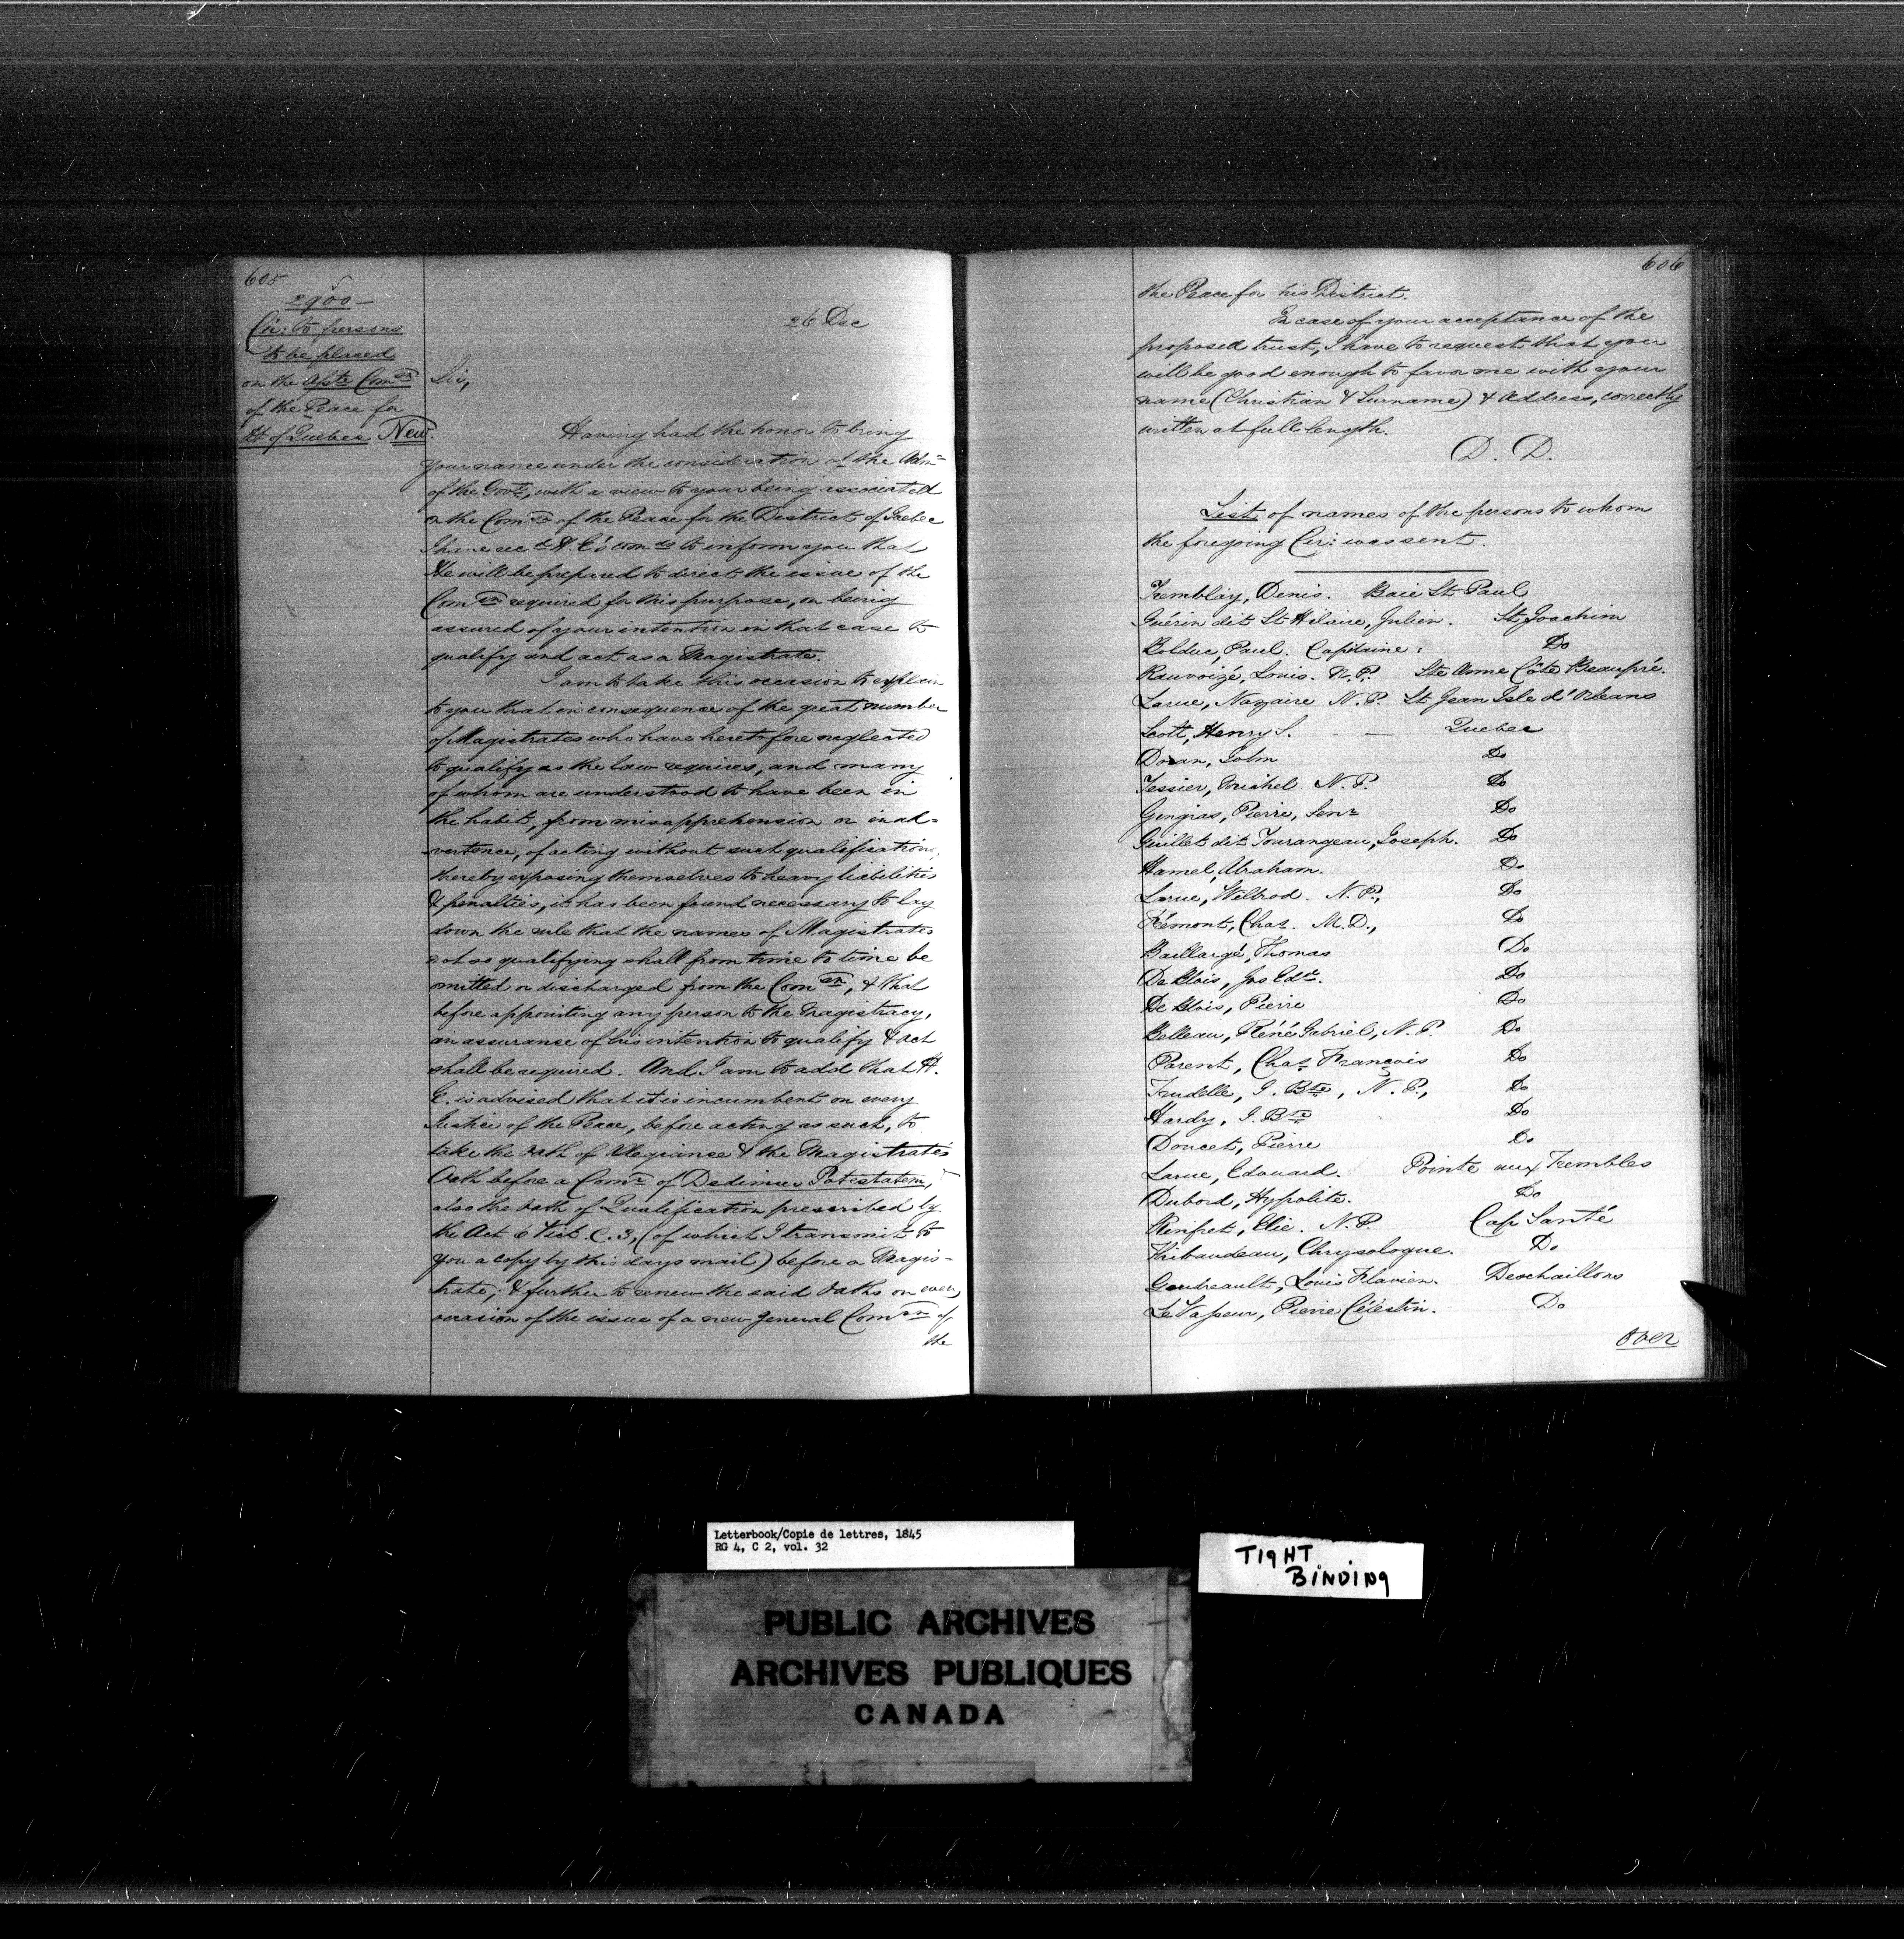 605
2900
Cir: to persons
to be placed
on the Asste Comsn
of the Peace for
Dt of Quebec New.
26 Dec
Sir,
Having had the honor to bring
your name under the consideration of the Admr
of the Govt, with a view to your being associated
in the Comsn of the Peace for the District of Quebec
I have recd H. E's comds to inform you that
He will be prepared to direct the issue of the
Comsn required for this purpose, on being
assured of your intention in that case to
qualify and act as a Magistrate.
I am to take this occasion to explain
to you that in consequence of the great number
of Magistrates who have heretofore neglected
to qualify as the law requires, and many
of whom are understood to have been in
the habit, from misapprehension or inad=
=vertence, of acting without such qualification,
thereby exposing themselves to heavy liabilities
& penalties, it has been found necessary to lay
down the rule that the names of Magistrates
not so qualifying shall from time to time be
omitted or discharged from the Comsn, & that
before appointing any person to the Magistracy,
an assurance of his intention to qualify & act
shall be required. And I am to add that H.
E. is advised that it is incumbent on every
Justice of the Peace, before acting as such, to
take the oath of Allegiance & the Magistrate's
Oath before a Comr of Dedimus Potestatem,
also the oath of Qualification prescribed by
the Act 6 Vict. C. 3, (of which I transmit to
you a copy by this days mail) before a Magis-
trate; & further to renew the said Oaths on every
occasion of the issue of a new general Comsn of
the
606
the Peace for his District.
In case of your acceptance of the
proposed trust, I have to request that you
will be good enough to favor me with your
name (Christian & Surname) & Address, correctly
written at full length.
D. D.
List of names of the persons to whom
the foregoing Cir: was sent.
Tremblay, Denis. Baie St. Paul
Guérin dit St Hilaire, Julien. St Joachim
Bolduc, Paul. Capitaine: Do
Rauvoizé, Louis. N. P. Ste Anne Côte Beaupré.
Larue, Nazaire N. P. St Jean Isle d'Orleans
Scott, Henry S. — Quebec
Doran, John Do
Tessier, Michel N. P. Do
Gingras, Pierre, Senr Do
Guillet dit Tourangeau, Joseph. Do
Hamel, Abraham. Do
Larue, Wilbrod. N. P., Do
Frémont, Chas. M. D., Do
Baillargé, Thomas Do
DeBlois, Jos Edd. Do
De Blois, Pierre Do
Belleau, Réné Gabriel, N. P. Do
Parent, Chas François Do
Trudelle, J. Bte, N. P., Do
Hardy, J. Bte Do
Doucet, Pierre Do
Larue, Edouard. Pointe aux Trembles
Dubord, Hyppolite. Do
Rinfret, Elie. N. P. Cap Santé
Thibaudeau, Chrysologue. Do
Gaudreault, Louis Flavien. Deschaillons
LeVasseur, Pierre Célestin. Do
Over
Letterbook/Copie de lettres, 1845
RG 4, C 2, vol. 32
TIGHT
BINDING
PUBLIC ARCHIVES
ARCHIVES PUBLIQUES
CANADA